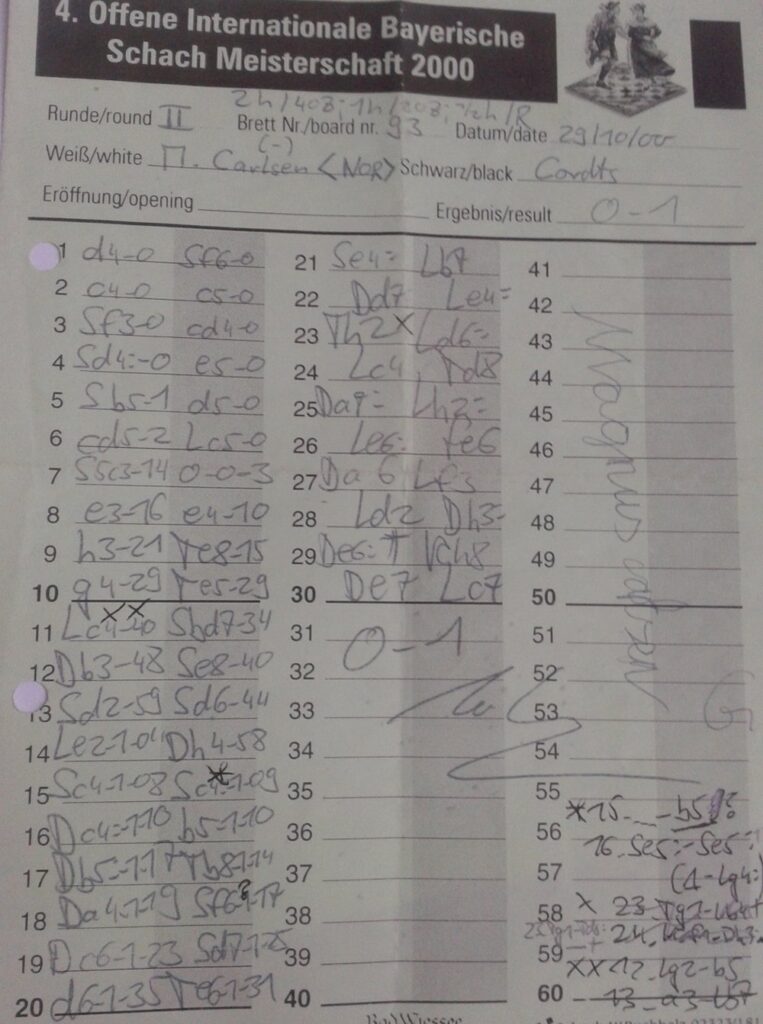 4. Offene Internationale Bayerische
Schach Meisterschaft 2000
2h/40B; 1h/20B; 1/2h/R
Runde/round II Brett Nr./board nr. 93 Datum/date 29/10/00
(-)
Weiß/white M. Carlsen <NOR> Schwarz/black Cordts
Eröffnung/opening Ergebnis/result 0-1
1 d4-0 Sf6-0
2 c4-0 c5-0
3 Sf3-0 cd4-0
4 Sd4:-0 e5-0
5 Sb5-1 d5-0
6 cd5-2 Lc5-0
7 S5c3-14 0-0-3
8 e3-16 e4-10
9 h3-21 Te8-15
10 g4-29 Te5-29
11 Lc4-40 Sbd7-34
12 Db3-48 Se8-40
13 Sd2-59 Sd6-44
14 Le2-1-04 Dh4-58
15 Sc4-1-08 Sc4:-1-09
16 Dc4:-1-10 b5-1-10
17 Db5:-1-17 Tb8-1-14
18 Da4-1-19 Sf6?-1-17
19 Dc6-1-23 Sd7-1-25
20 d6-1-35 Te6-1-31
21 Se4: Lb7
22 Dd7 Le4:
23 Th2 x Ld6:
24 Lc4 Td8
25 Da7: Lh2:
26 Le6: fe6
27 Da6 Lf3
28 Ld2 Dh3:
29 De6:+ Kh8
30 De7 Lc7
31 0-1
32
33
34
35
36
37
38
39
40
41
42
43
44
45
46
47
48
49
50
51
52
53
54
55
56
57
58
59
60
Magnus
G
* 15. ... -b5!?
16. Se5:-Se5:
(Δ-Lg4:)
x 23. Tg1-Lb4+
xx 12. Lg2-b5
13. a3-Lb7
Bad Wiessee